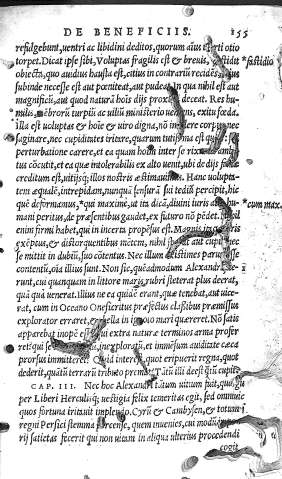 DE BENEFICIIS. 155
refulgebunt, uentri ac libidini deditos, quorum aius erti otio
torpet. Dicat ipse sibi, Voluptas fragilis est & breuis, fastidio
obiecta, quo auidus hausta est, citius in contrariū recidēs,
subinde necesse est aut pœniteat, aut pudeat. In qua nihil est aut
magnificū, aut quod naturā hoīs dijs proximā deceat. Res hu-
milis, mēbrorū turpiū ac uiliū ministerio ueniens, exitu fœda.
illa est uoluptas & hoīe & uiro digna, nō implere corpus nec
saginare, nec cupiditates irritare, quarum tutissima est quies
perturbatione carere, et ea quam hoīm inter se rixantium
tus cōcutit, et ea quæ intolerabilis ex alto uenit, ubi de dijs
creditum est, uitijsq; illos nostris æstimauimus. Hanc uolupta-
tem æqualē, intrepidam, nunquā sensurā sui tediū percipit, hic
quē deformamus, *qui maxime, ut ita dicā, diuini iuris at hu-
mani peritus, de præsentibus gaudet, ex futuro nō pēdet.
enim firmi habet, qui in incerta propēsus est. Magnis
exeptus, & distorquentibus mētem, nihil sperat aut cupit, nec
se mittit in dubiū, suo cōtentus. Nec illum existimes paruo esse
contentū, oīa illius sunt. Non sic, quēadmodum Alexandri
runt, cui quanquam in littore maris rubri steterat plus deerat,
quā quā uenerat. Illius ne ea quidē erant, quæ tenebat, aut uice-
rat, cum in Oceano Onesicritus præfectus classibus præmissus
explorator erraret, & bella in ignoto mari quæreret. Nō satis
apparebat inopē esse, qui extra naturæ terminos arma profer-
ret? qui se inexploratū, et immēsum auiditate cæca
prorsus immitteret? Quid interest, quot eripuerit regna, quot
dederit, quātū terrarū tributo premat? Tātū illi deest quātū cupit.
CAP. III. Nec hoc Alexandri tātum uitium fuit, quem
per Liberi Herculisq; uestigia felix temeritas egit, sed omnium
quos fortuna irritauit implendo. Cyrū & Cambysen, & totum
regni Persici stemma percense, quem inuenies, cui modū im-
perij satietas fecerit qui non uitam in aliqua ulterius procedendi
cogit
*fastidio
*cum max.